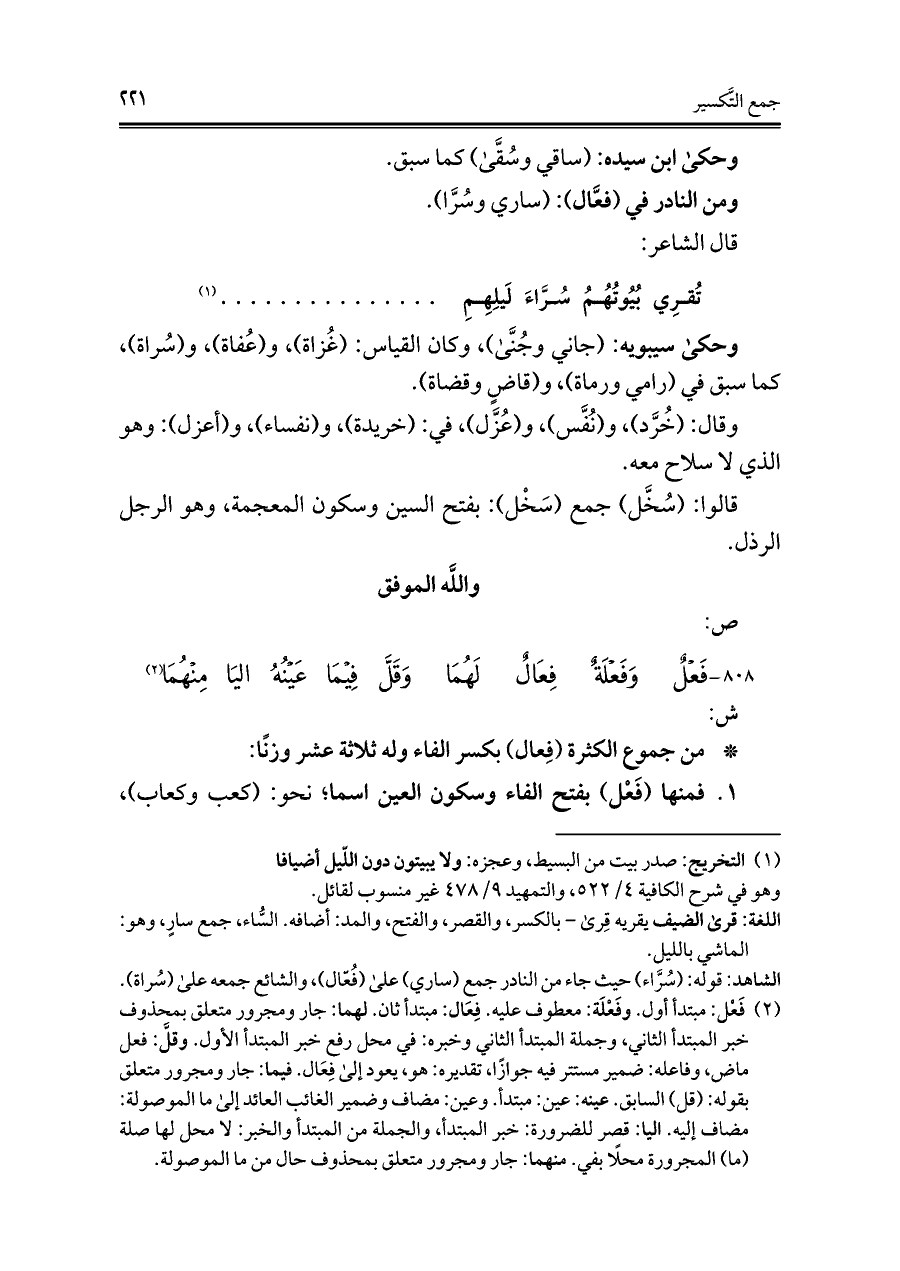 جمع التَّكسير ٢٢١
وحكىٰ ابن سيده: (ساقي وسُقَّىٰ) كما سبق.
ومن النادر في (فعَّال): (ساري وسُرَّا).
قال الشاعر:
تُقـرِي بُيُوتُهُـمُ سُـرَّاءَ لَيلِهِـمِ . . . . . . . . . . . . . . . (١)
وحكىٰ سيبويه: (جاني وجُنَّىٰ)، وكان القياس: (غُزاة)، و(عُفاة)، و(سُراة)،
كما سبق في (رامي ورماة)، و(قاضٍ وقضاة).
وقال: (خُرَّد)، و(نُفَّس)، و(عُزَّل)، في: (خريدة)، و(نفساء)، و(أعزل): وهو
الذي لا سلاح معه.
قالوا: (سُخَّل) جمع (سَخْل): بفتح السين وسكون المعجمة، وهو الرجل
الرذل.
واللَّه الموفق
ص:
٨٠٨-فَعْلٌ وَفَعْلَةٌ فِعَالٌ لَهُمَا وَقَلَّ فِيْمَا عَيْنُهُ اليَا مِنْهُمَا(٢)
ش:
* من جموع الكثرة (فِعال) بكسر الفاء وله ثلاثة عشر وزنًا:
١. فمنها (فَعْل) بفتح الفاء وسكون العين اسما؛ نحو: (كعب وكعاب)،
(١) التخريج: صدر بيت من البسيط، وعجزه: ولا يبيتون دون اللّيل أضيافا
وهو في شرح الكافية ٤/ ٥٢٢، والتمهيد ٩/ ٤٧٨ غير منسوب لقائل.
اللغة: قرىٰ الضيف يقريه قِرىٰ – بالكسر، والقصر، والفتح، والمد: أضافه. السُّاء، جمع سارٍ، وهو:
الماشي بالليل.
الشاهد: قوله: (سُرَّاء) حيث جاء من النادر جمع (ساري) علىٰ (فُعّال)، والشائع جمعه علىٰ (سُراة).
(٢) فَعْل: مبتدأ أول. وفَعْلَة: معطوف عليه. فِعَال: مبتدأ ثان. لهما: جار ومجرور متعلق بمحذوف
خبر المبتدأ الثاني، وجملة المبتدأ الثاني وخبره: في محل رفع خبر المبتدأ الأول. وقلَّ: فعل
ماض، وفاعله: ضمير مستتر فيه جوازًا، تقديره: هو، يعود إلىٰ فِعَال. فيما: جار ومجرور متعلق
بقوله: (قل) السابق. عينه: عين: مبتدأ. وعين: مضاف وضمير الغائب العائد إلىٰ ما الموصولة:
مضاف إليه. اليا: قصر للضرورة: خبر المبتدأ، والجملة من المبتدأ والخبر: لا محل لها صلة
(ما) المجرورة محلًا بفي. منهما: جار ومجرور متعلق بمحذوف حال من ما الموصولة.